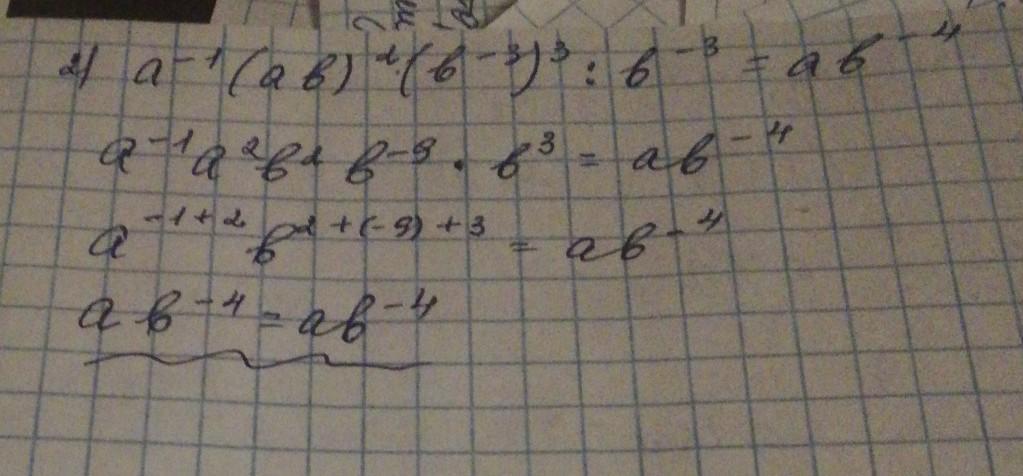 2) a⁻¹(ab)²·(b⁻³)³ : b⁻³ = ab⁻⁴
a⁻¹a²b² b⁻⁹ · b³ = ab⁻⁴
a⁻¹⁺² b²⁺⁽⁻⁹⁾⁺³ = ab⁻⁴
ab⁻⁴ = ab⁻⁴